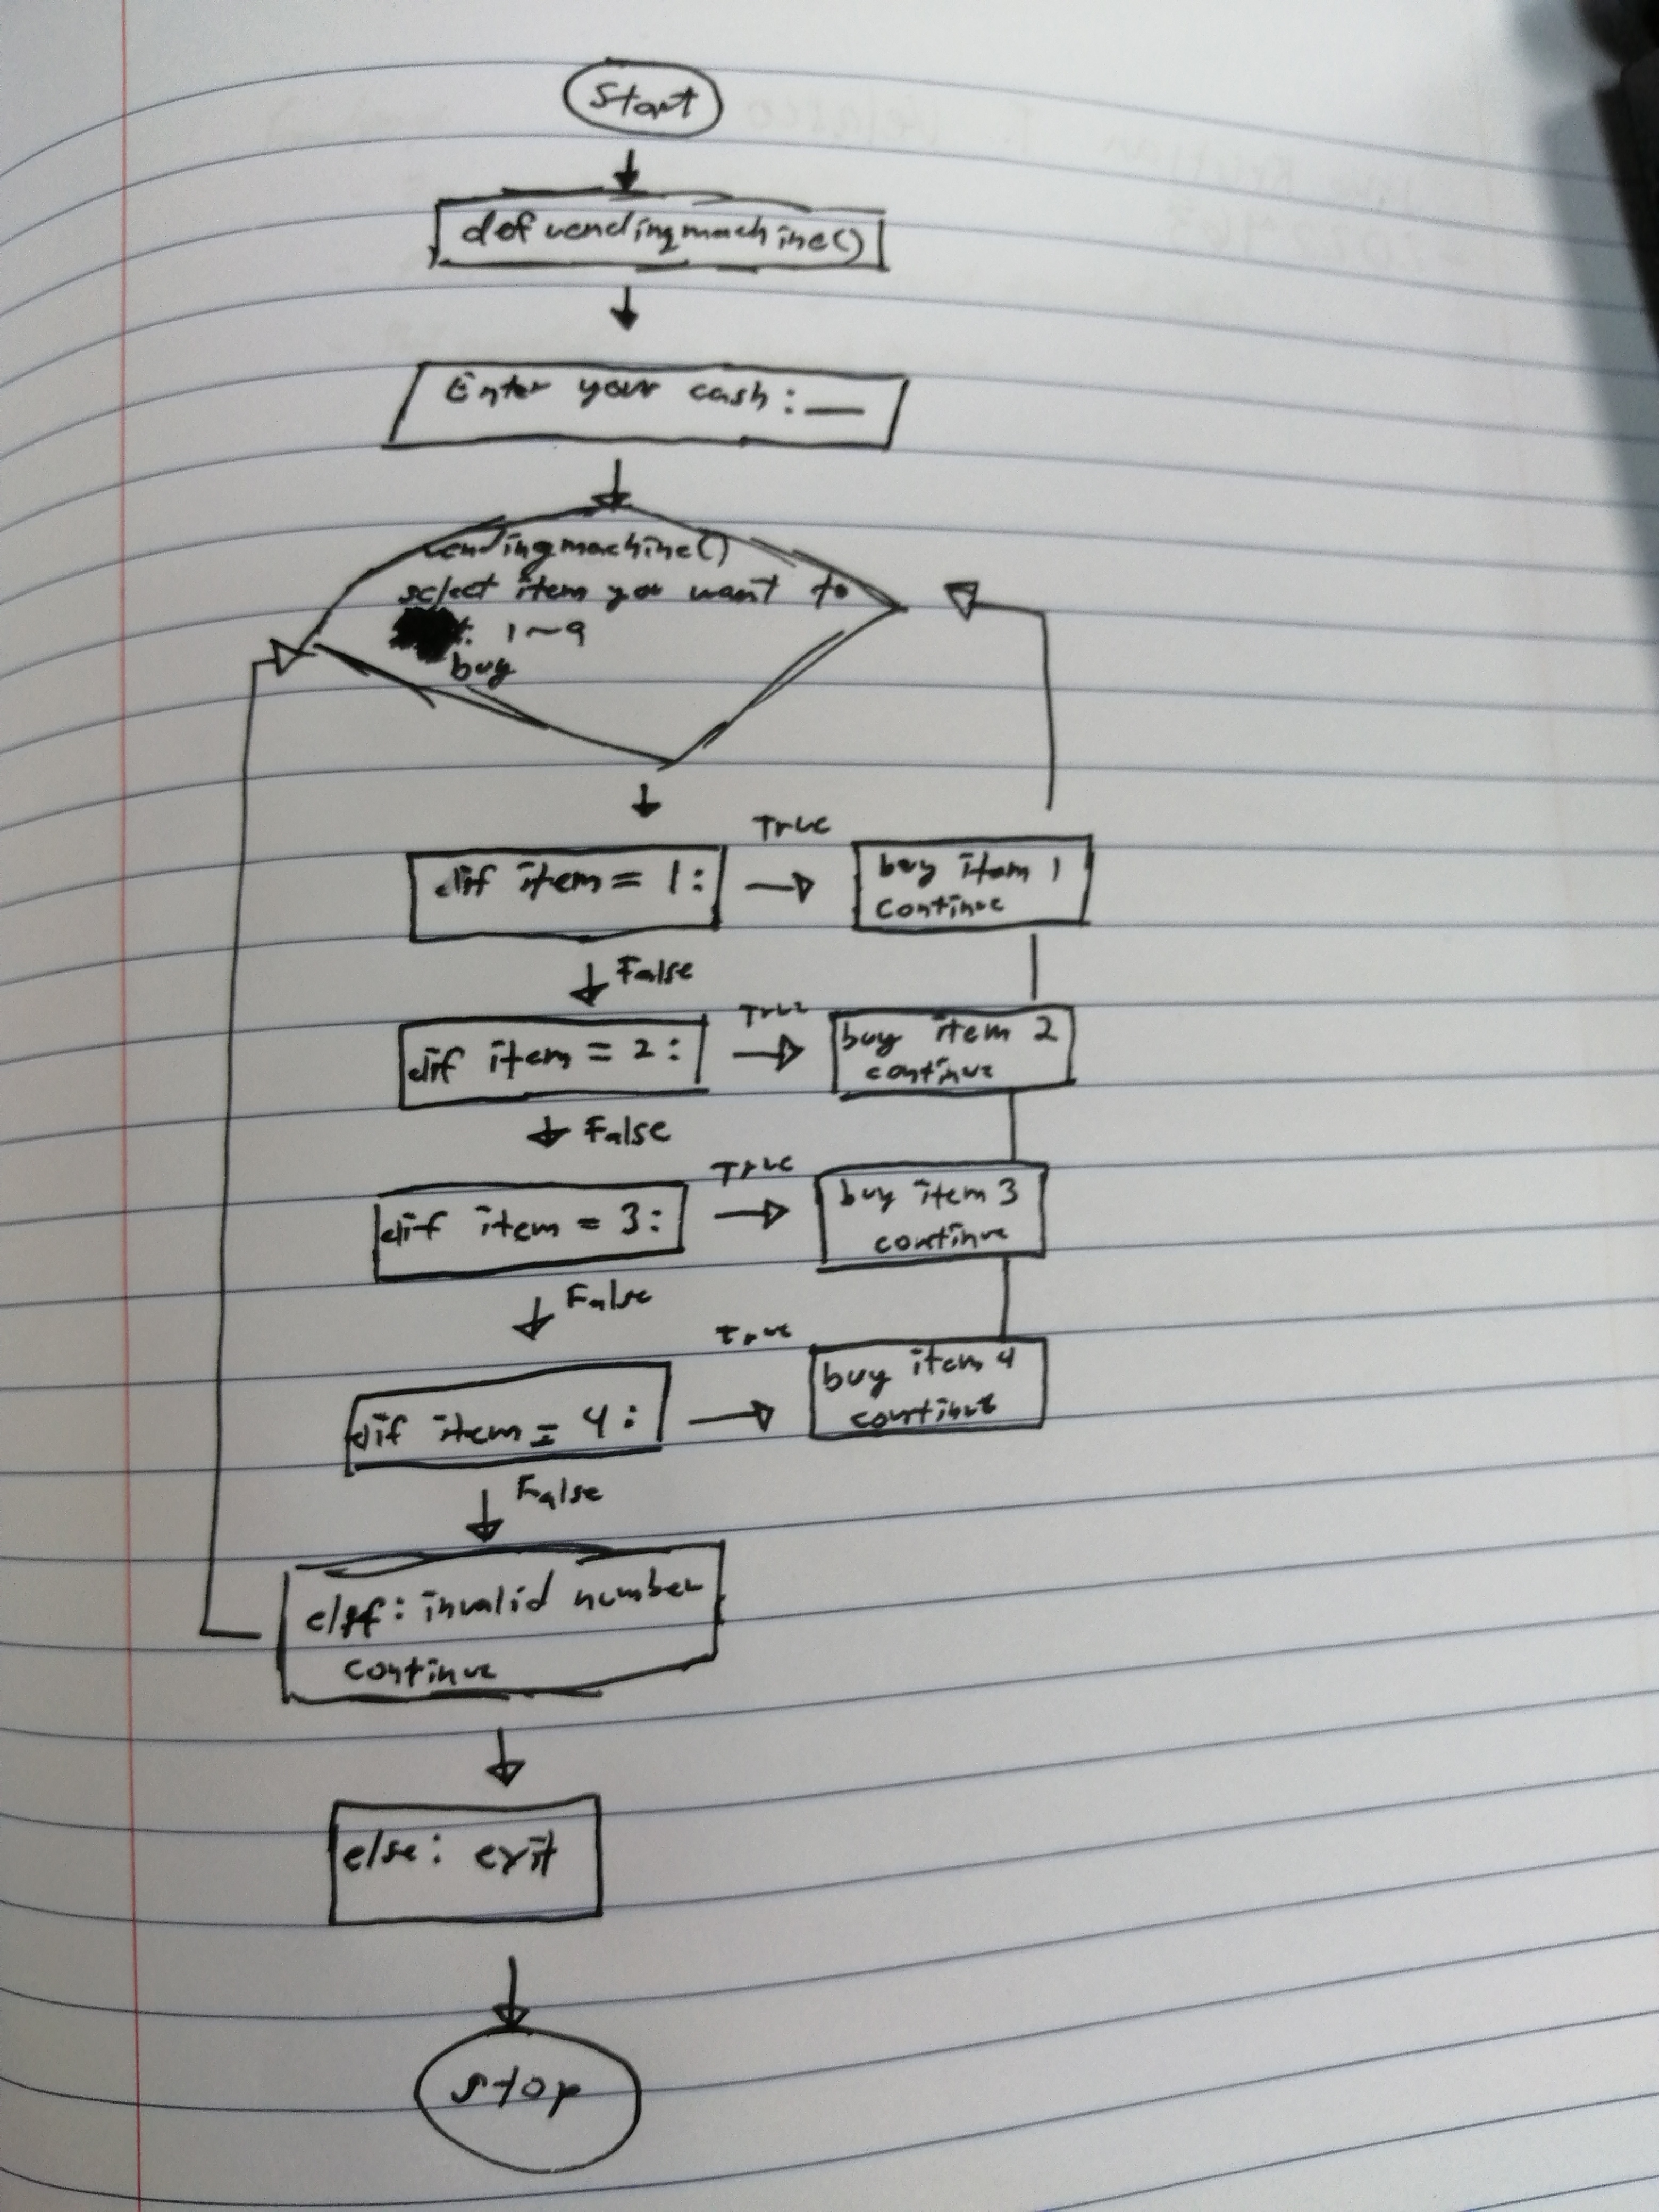 Start
def vendingmachine()
Enter your cash: __
vendingmachine()
select item you want to
: 1~9
buy
True
elif item = 1:
buy item 1
continue
False
True
elif item = 2:
buy item 2
continue
False
True
elif item = 3:
buy item 3
continue
False
True
elif item = 4:
buy item 4
continue
False
elif: invalid number
continue
else: exit
stop